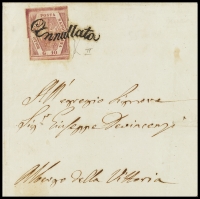 POSTA
Annullato
All' egregio Signore
Sig. Giuseppe Devincenzi
Albergo della Vittoria